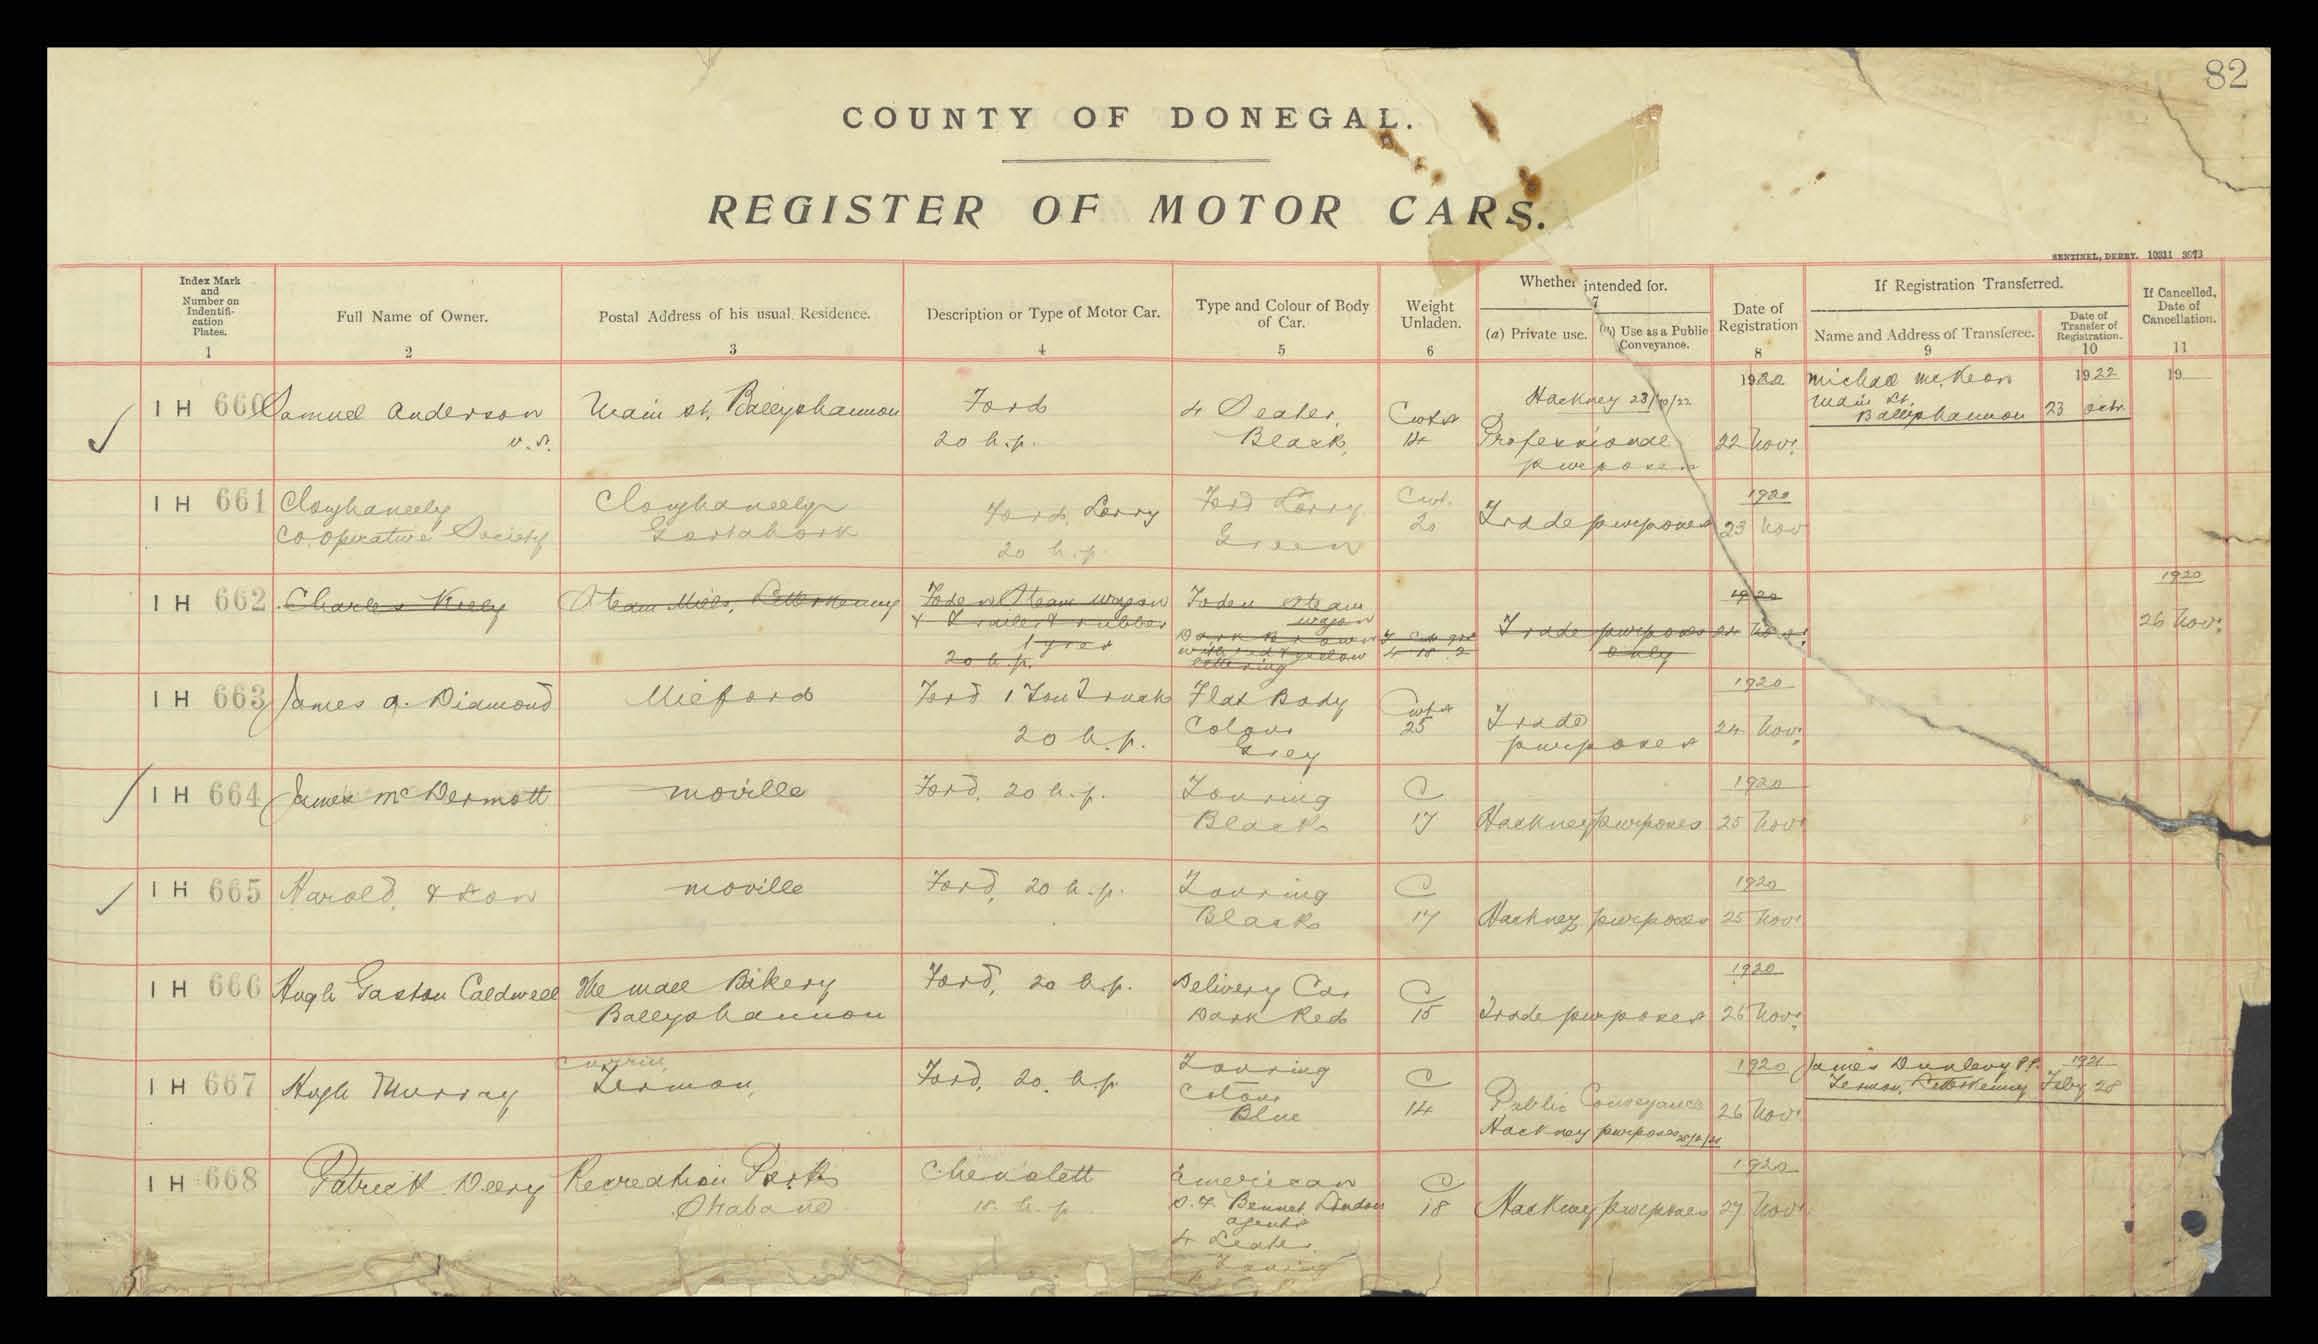 82
COUNTY OF DONEGAL.
REGISTER OF MOTOR CARS.
SENTINEL, DERRY. 10311 3973
Index Mark
and
Number on
Indentifi-
cation
Plates.
1
Full Name of Owner.
2
Postal Address of his usual Residence.
3
Description or Type of Motor Car.
4
Type and Colour of Body
of Car.
5
Weight
Unladen.
6
Whether intended for.
7
(a) Private use.
Use as a Public
Conveyance.
Date of
Registration
8
If Registration Transferred.
Name and Address of Transferee.
9
Date of
Transfer of
Registration.
10
If Cancelled,
Date of
Cancellation.
11
I H 660
Samuel Anderson
v.s.
Main st. Ballyshannon
Ford
20 h.p.
4 Seater,
Black,
Cwts
14
Hackney 23/10/22
Professional
purposes
1920
22 Nov:
Michael McKeon
Main St.
Ballyshannon
1922
23 Octr.
19
I H 661
Cloghaneely
Co. operative Society
Cloghaneely
Gortahork
Ford Lorry
20 h.p.
Ford Lorry
Green
Cwt.
20
Trade purposes
1920
23 Nov
I H 662
Charles Kiely
Steam Mills, Letterkenny
Foden Steam wagon
& Trailer & rubber
tyres
20 h.p.
Foden steam
wagon
Dark Brown
with red & yellow
lettering
T Cwt qrs
4 18 2
Trade purposes
only
1920
24 Nov:
1920
26 Nov:
I H 663
James A. Diamond
Milford
Ford 1 Ton Truck
20 h.p.
Flat Body
Colour
Grey
Cwts
25
Trade
purposes
1920
24 Nov:
I H 664
James McDermott
Moville
Ford, 20 h.p.
Touring
Black
C
17
Hackney purposes
1920
25 Nov:
I H 665
Harold & Son
Moville
Ford, 20 h.p.
Touring
Black
C
17
Hackney purposes
1920
25 Nov:
I H 666
Hugh Gaston Caldwell
The Mall Bikery
Ballyshannon
Ford, 20 h.p.
Delivery Car
Dark Red
C
15
Trade purposes
1920
26 Nov:
I H 667
Hugh Murray
Termon,
Ford, 20. h.p.
Touring
Colour
Blue
C
14
Public Conveyance
Hackney purposes
1920
26 Nov:
James Dunlevy P.P.
Termon, Letterkenny
1921
Feby 28
I H 668
Patrick Deery
Recreation Park
Strabane
Chevolett
18. h.p.
American
S.F. Bennet London
agents
4 Seater
Touring
C
18
Hackney purposes
1920
27 Nov: